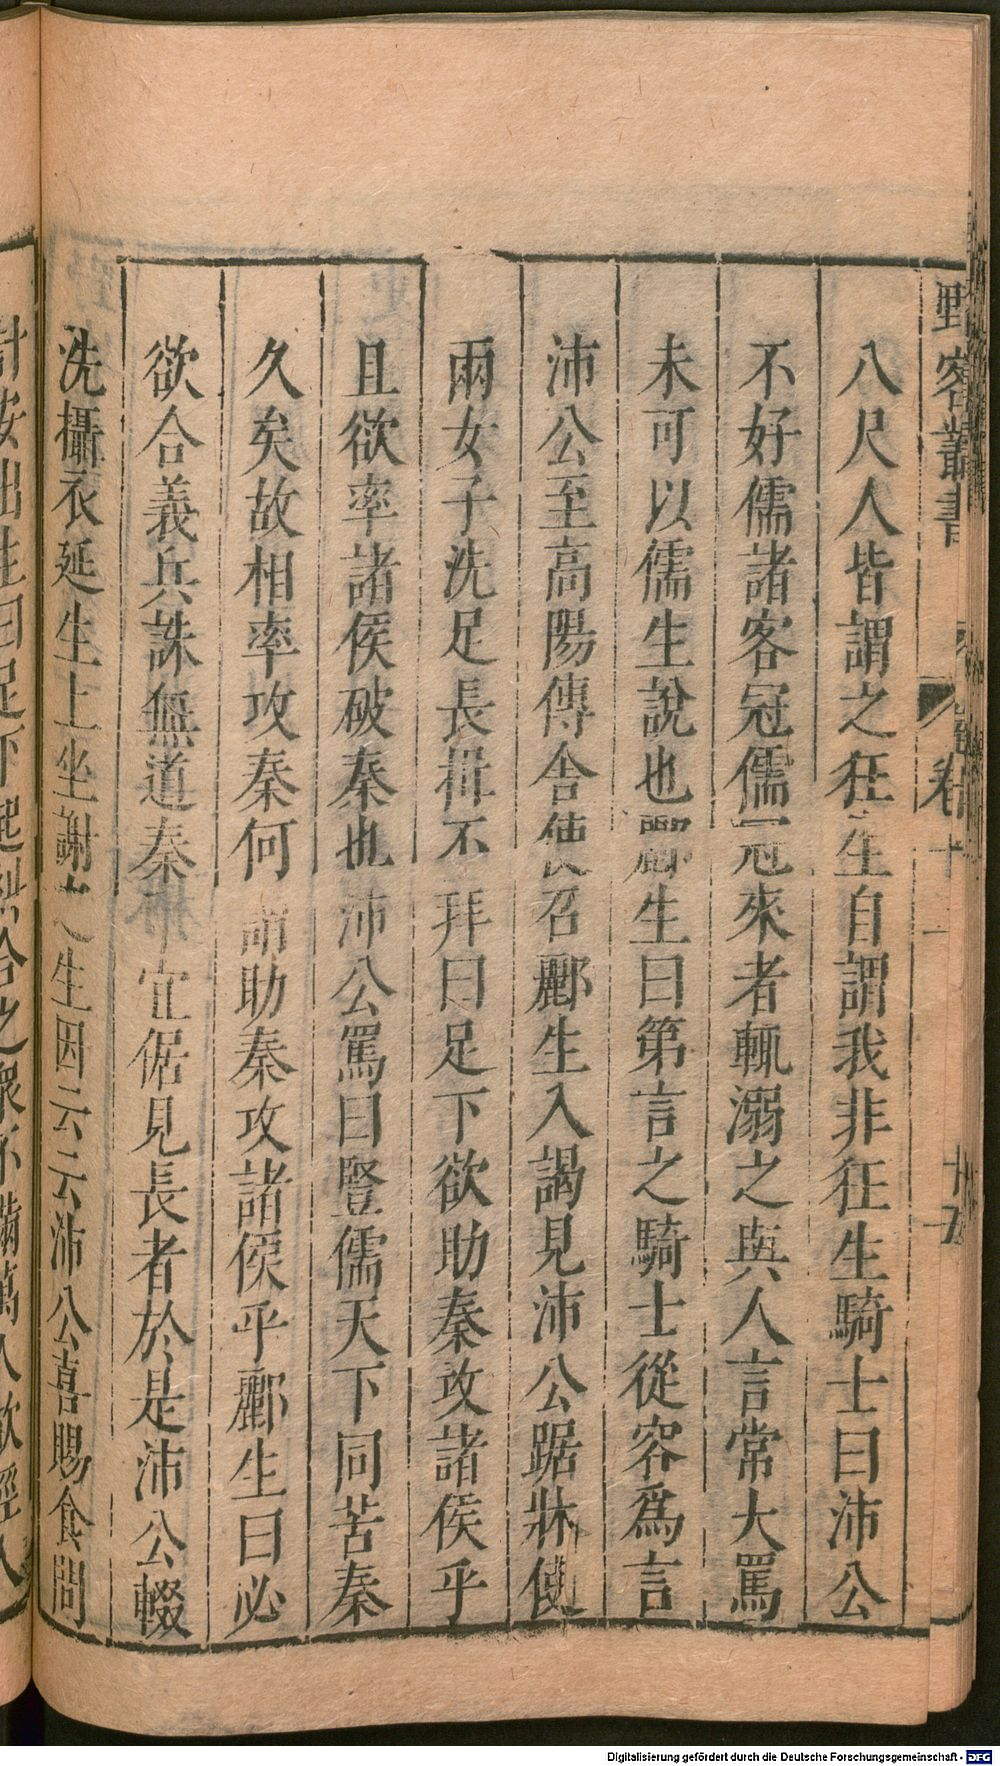 野客叢書 卷十 十五
八尺人皆謂之狂生自謂我非狂生騎士曰沛公
不好儒諸客冠儒冠來者輒溺之與人言常大罵
未可以儒生說也酈生曰第言之騎士從容為言
沛公至高陽傳舍使召酈生入謁見沛公踞牀使
兩女子洗足長揖不拜曰足下欲助秦攻諸侯乎
且欲率諸侯破秦也沛公罵曰豎儒天下同苦秦
久矣故相率攻秦何謂助秦攻諸侯乎酈生曰必
欲合義兵誅無道秦不宜倨見長者於是沛公輟
洗攝衣延生上坐謝之生因云云沛公喜賜食問
計安出生曰足下起糾合之眾不滿萬人欲徑入
Digitalisierung gefördert durch die Deutsche Forschungsgemeinschaft - DFG